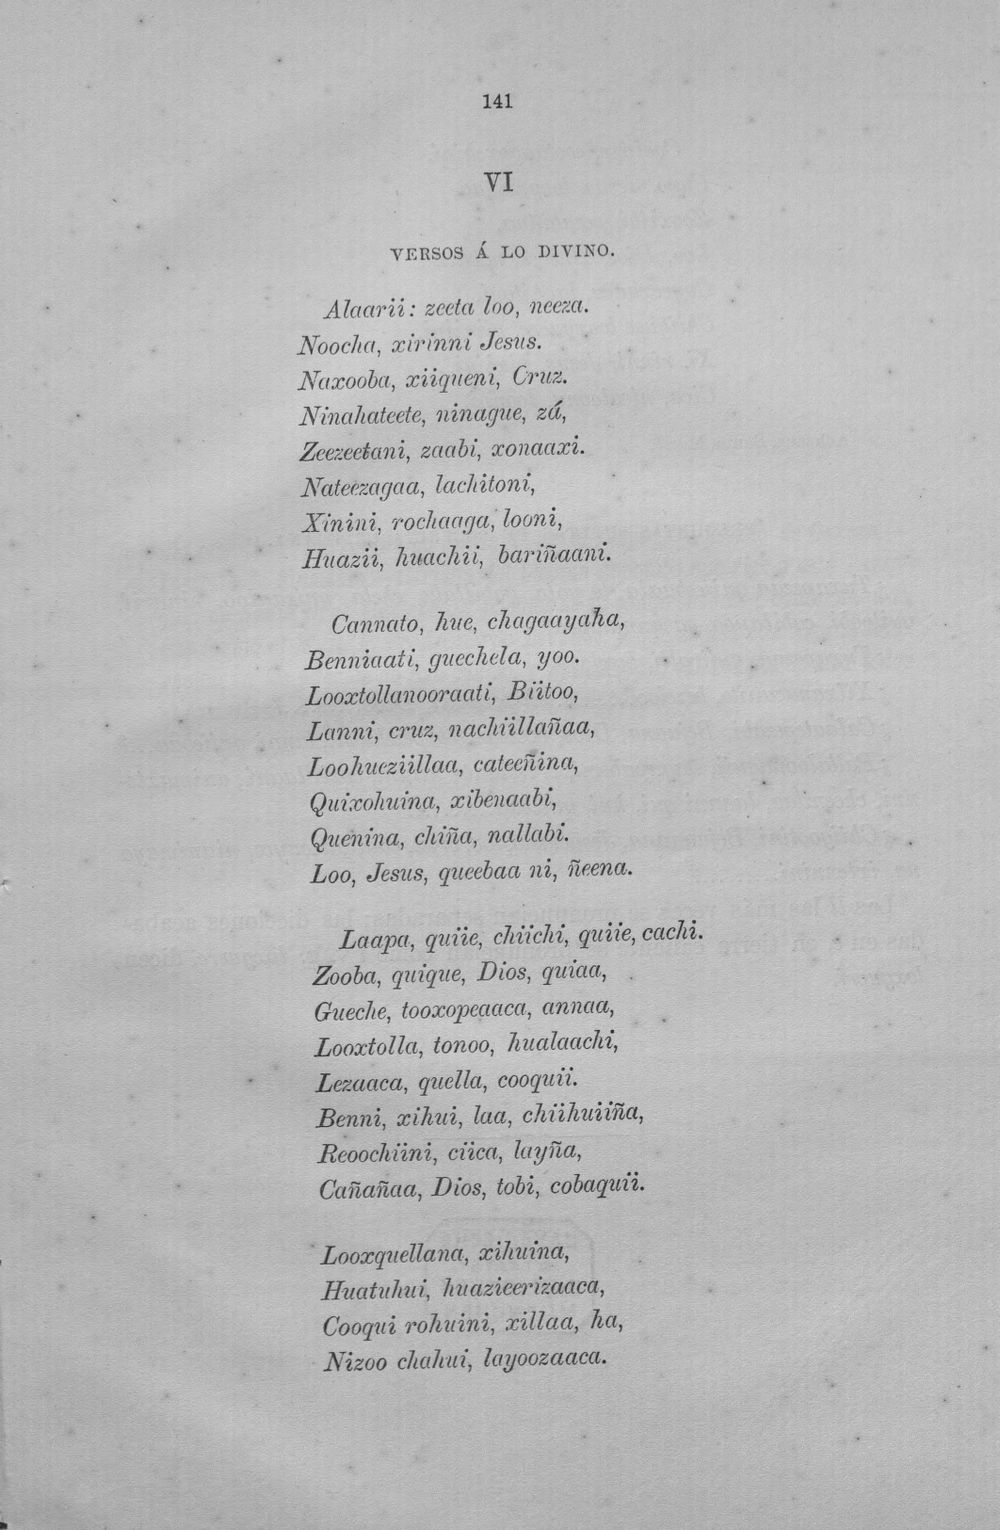 141
VI
VERSOS Á LO DIVINO.
Alaarii: zeeta loo, neeza.
Noocha, xirinni Jesus.
Naxooba, xiiqueni, Cruz.
Ninahateete, ninague, zá,
Zeezeetani, zaabi, xonaaxi.
Nateezagaa, lachitoni,
Xinini, rochaaga, looni,
Huazii, huachii, bariñaani.
Cannato, hue, chagaayaha,
Benniaati, guechela, yoo.
Looxtollanooraati, Biitoo,
Lanni, cruz, nachiillañaa,
Loohueziillaa, cateeñina,
Quixohuina, xibenaabi,
Quenina, chiña, nallabi.
Loo, Jesus, queebaa ni, ñeena.
Laapa, quiie, chiichi, quiie, cachi.
Zooba, quique, Dios, quiaa,
Gueche, tooxopeaaca, annaa,
Looxtolla, tonoo, hualaachi,
Lezaaca, quella, cooquii.
Benni, xihui, laa, chiihuiiña,
Reoochiini, ciica, layña,
Cañañaa, Dios, tobi, cobaquii.
Looxquellana, xihuina,
Huatuhui, huazieerizaaca,
Cooqui rohuini, xillaa, ha,
Nizoo chahui, layoozaaca.